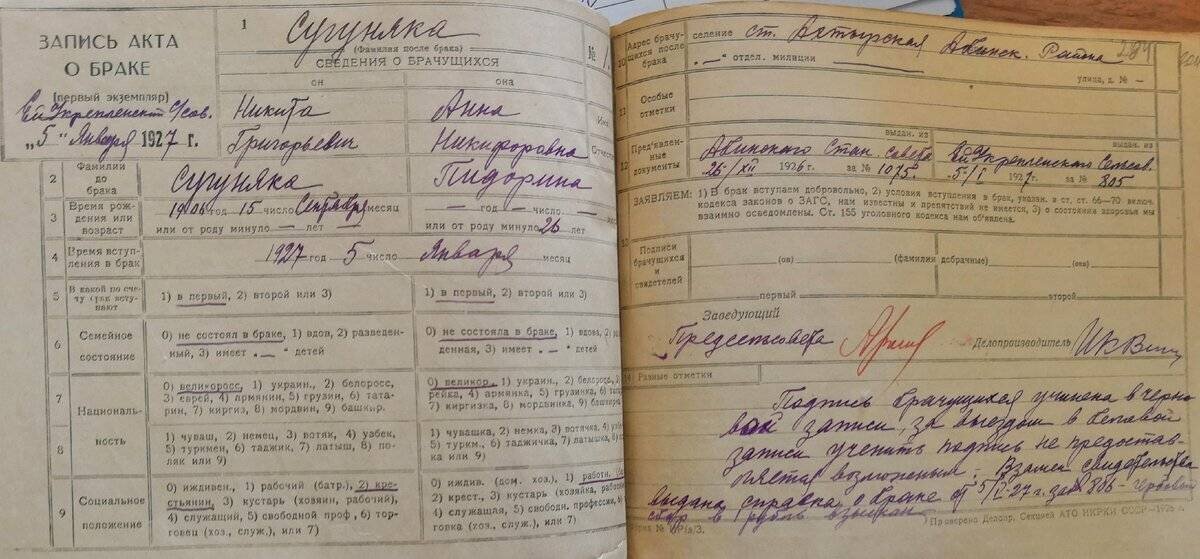 ЗАПИСЬ АКТА
О БРАКЕ
(первый экземпляр)
„5" Января 1927 г.
1
Сугуняка
(Фамилия после брака)
№
СВЕДЕНИЯ О БРАЧУЩИХСЯ
он
она
Никита
Анна
Григорьевич
Никифоровна
2 Фамилии до брака
Сугуняка
Пидорина
3 Время рождения или возраст
1906 год 15 число Сентября месяц
или от роду минуло — лет
— год — число — 
или от роду минуло 26 лет
4 Время вступления в брак
1927 год 5 число Января месяц
5 В какой по счету брак вступают
1) в первый, 2) второй или 3)
1) в первый, 2) второй или 3)
6 Семейное состояние
0) не состоял в браке, 1) вдов, 2) разведен-
ный, 3) имеет „—" детей
0) не состояла в браке, 1) вдова, 2) раз
денная, 3) имеет „—" детей
7 Националь-
0) великоросс, 1) украин., 2) белоросс,
3) еврей, 4) армянин, 5) грузин, 6) тата-
рин, 7) киргиз, 8) мордвин, 9) башкир.
0) великор., 1) украин., 2) белоросс.,
рейка, 4) армянка, 5) грузинка, 6) тата
7) киргизка, 8) мордвинка, 9) башкирка
8 ность
1) чуваш, 2) немец, 3) вотяк, 4) узбек,
5) туркмен, 6) таджик, 7) латыш, 8) по-
ляк или 9)
1) чувашка, 2) немка, 3) вотячка, 4) узбе
5) туркм., 6) таджичка, 7) латышка, 8)
ка или 9)
9 Социальное положение
0) иждивен., 1) рабочий (батр.), 2) кре-
стьянин, 3) кустарь (хозяин, рабочий),
4) служащий, 5) свободной проф., 6) тор-
говец (хоз., служ.), или 7)
0) иждив. (дом. хоз.), 1) работн.
2) крест., 3) кустарь (хозяйка, работни
4) служащая, 5) свободн. профессии, 6)
говка (хоз., служ.), или 7)
10 Адрес брачущихся после брака
селение ст. Ахтырская Абинск. Района
„—" отдел. милиции
улица, д. № —
11 Особые отметки
12 Пред'явленные документы
выдан. из
Абинского Стан. Совета
26/XII 1926 г. за № 1075
выдан. из
5/I 1927 г. за № 805
ЗАЯВЛЯЕМ: 1) В брак вступаем добровольно, 2) условия вступления в брак, указан. в ст. ст. 66—70 включ.
кодекса законов о ЗАГС, нам известны и препятствий не имеется, 3) о состоянии здоровья мы
взаимно осведомлены. Ст. 155 уголовного кодекса нам об'явлена.
13 Подписи брачущихся и свидетелей
(он) (фамилии добрачные) (она)
первый
второй
Заведующий
Предсельсовета
Делопроизводитель
14) Разные отметки
Подпись брачущихся учинена в черно-
вой записи, за выездом в беловой
записи учинить подпись не предостав-
ляется возможным. Взамен свидетельства
выдана справка о браке от 5/I-27 г. за № 806 гербовой
сбор в рубль взыскан
Проверено Делопр. Секцией АТО НКРКИ СССР—1926 г.